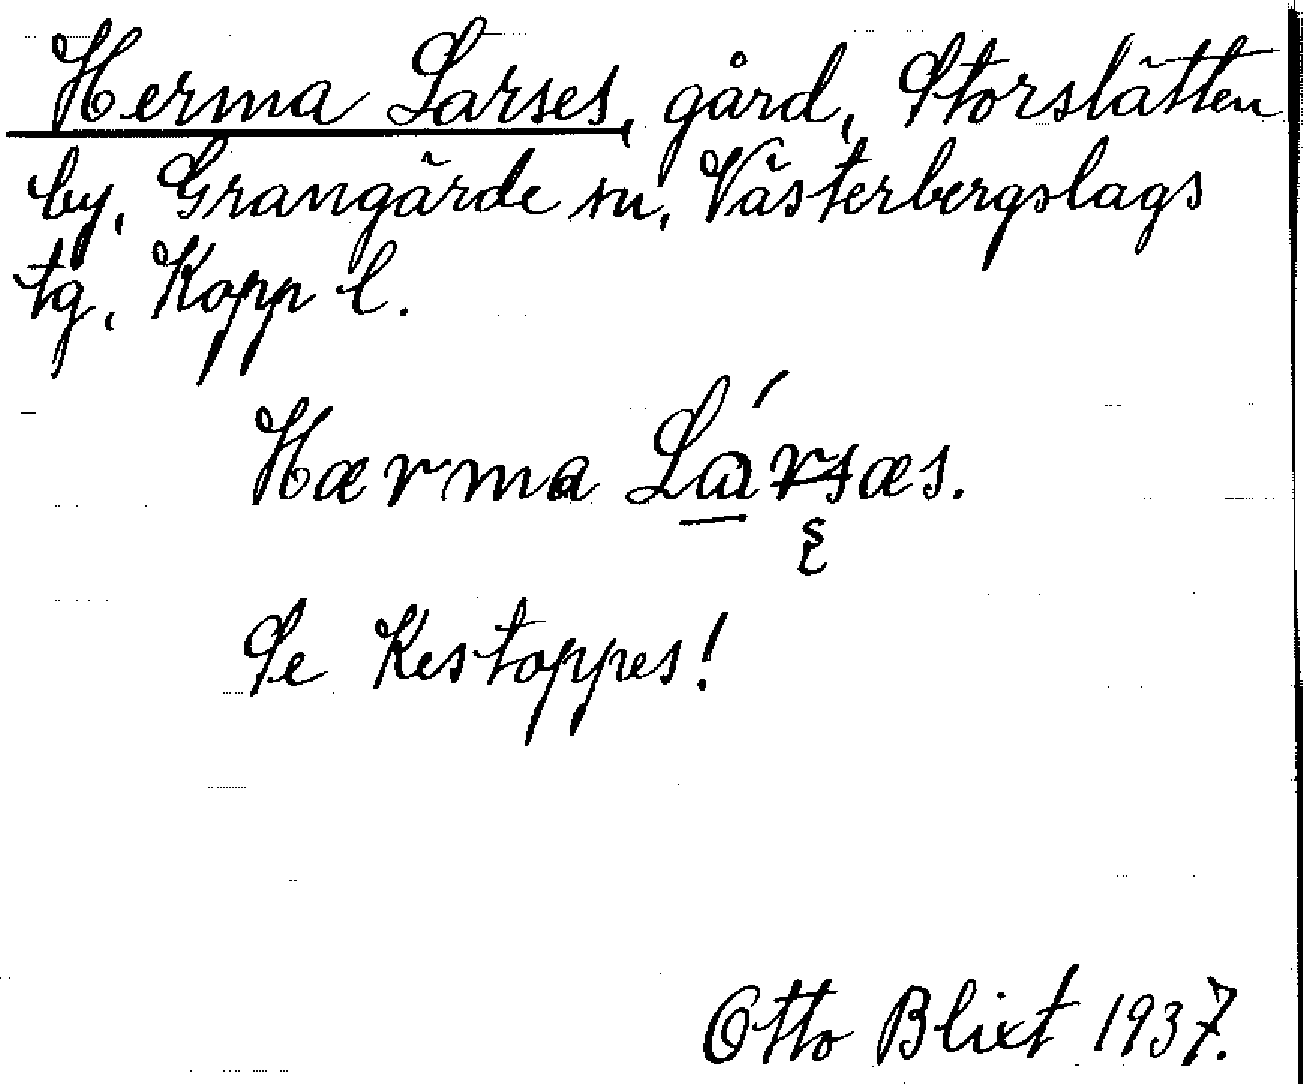 Herma Larses, gård, Storslätten
by, Grangärde sn, Västerbergslags
tg, Kopp l.
Hærma Lársæs.
Se Kestoppes!
Otto Blixt 1937.